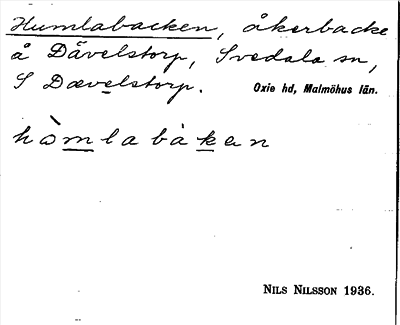 Humlabacken, åkerbacke
å Dävelstorp, Svedala sn,
S Dævelstorp. Oxie hd, Malmöhus län.
hòmlabàken
NILS NILSSON 1936.